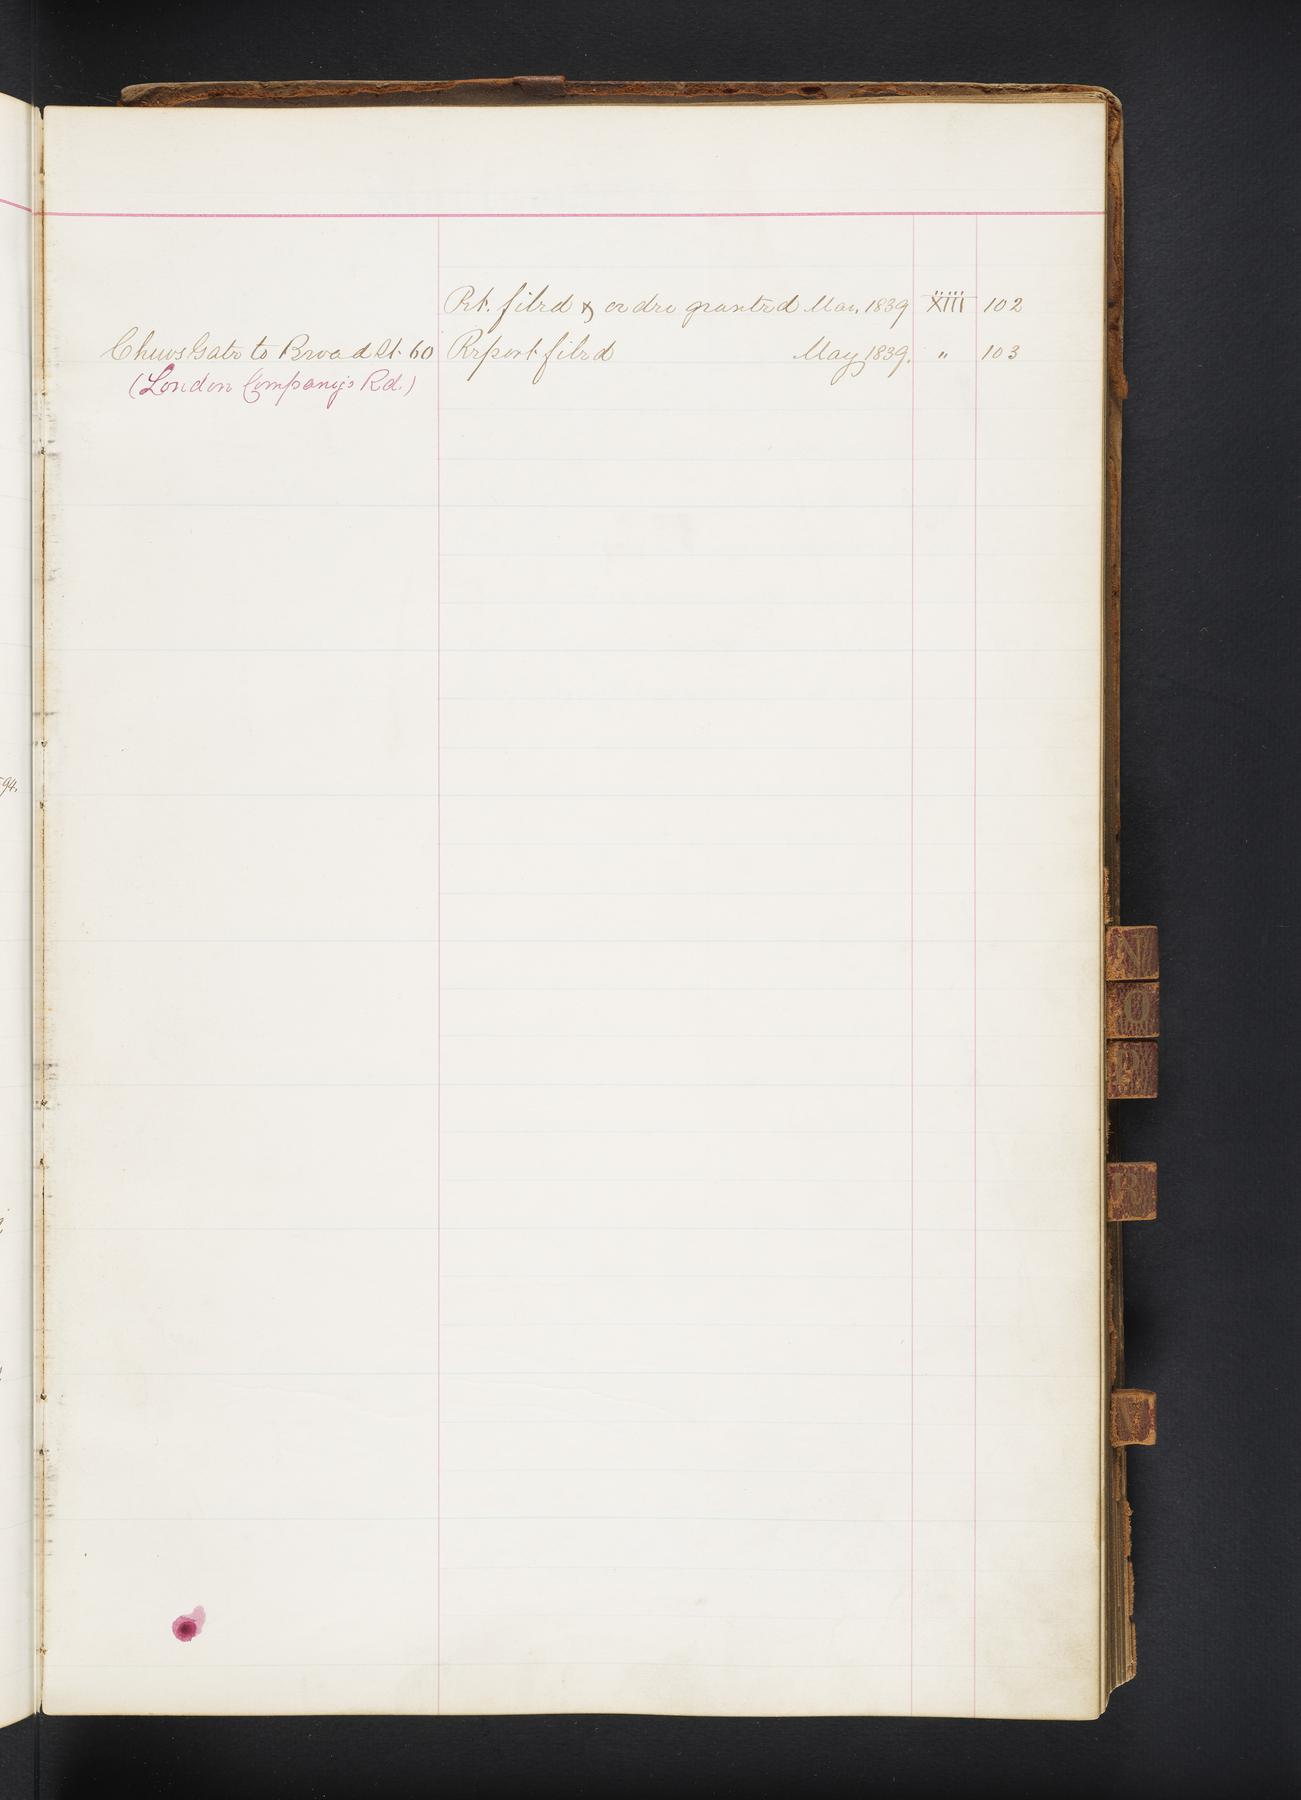 Rt. filed & order granted Mar. 1839 XIII 102
Chews Gate to Broad St. 60 Report filed May 1839. " 103
(London Company's Rd.)
94.
N
O
P
R
V